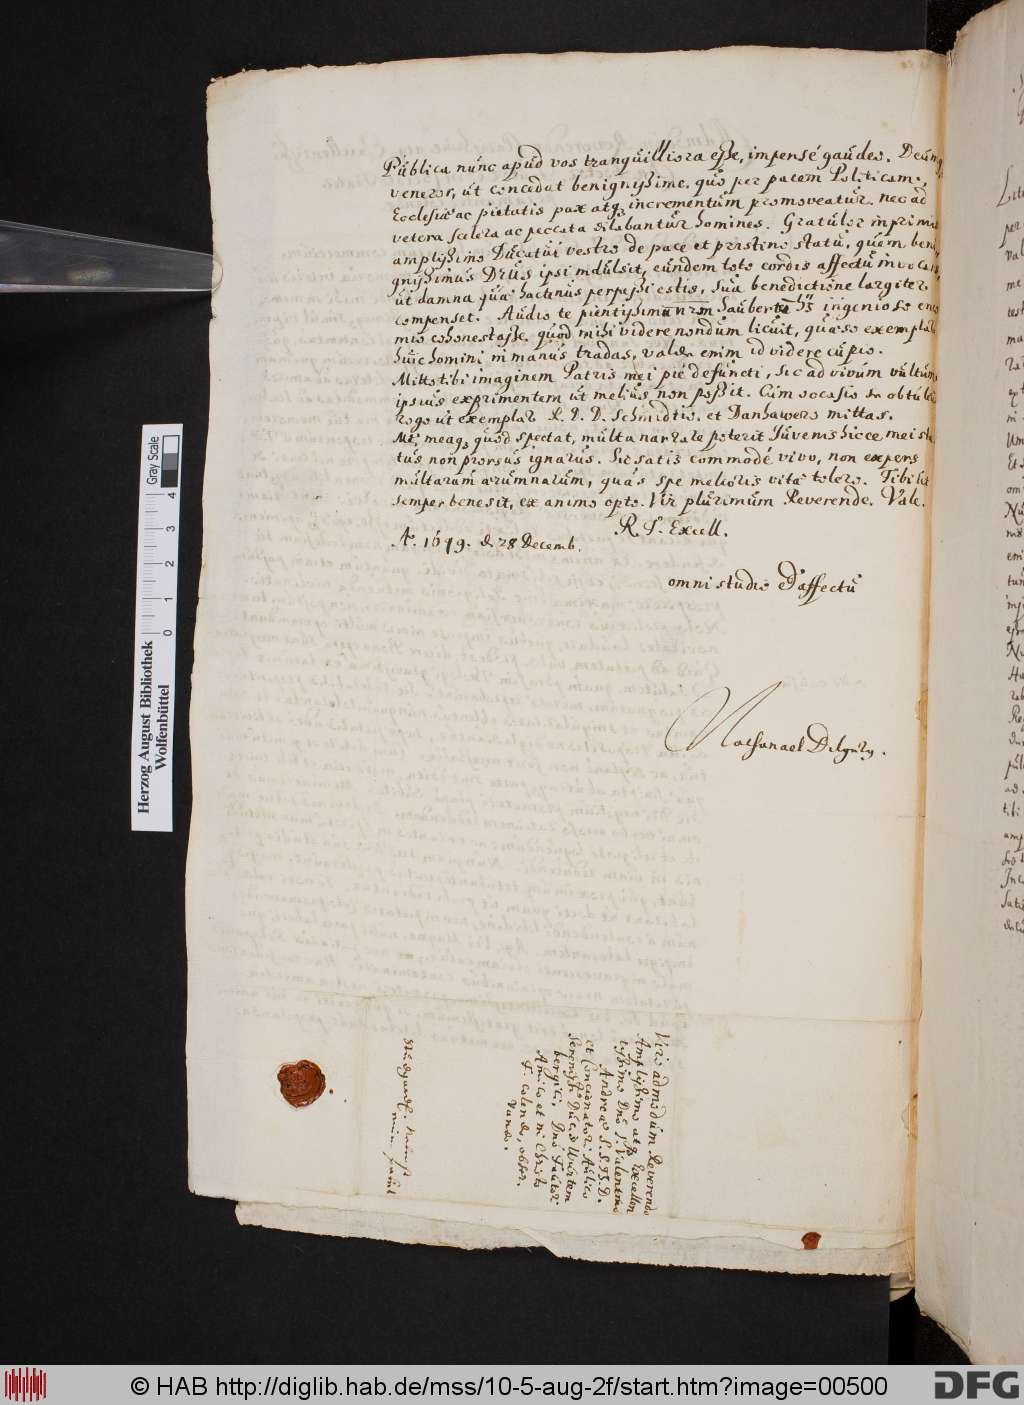 Publica nunc apud vos tranquilliora esse, impensé gaudeo. Deum
veneror, ut concidat benignissime, quo per pacem Politicam,
Ecclesiæ ac pietatis pax atq; incrementum promoveatur, nec ad
vetera scelera ac peccata dilabantur homines. Gratulor inprimis
amplissimo Ducatui vestro de pace et pristino statu, quem beni
gnissimus Deus ipsi indulsit, eundem toto cordis affectu invocans,
ut damna quæ hactenus perpessi estis, sua benedictione largiter
compenset. Audio te pientissimum nrm Saubertum ingenioso enco
mio cohonestasse, quod mihi videre nondum licuit, quæso exemplar
huic homini in manus tradas, valde enim id videre cupio.
Mitto tibi imaginem Patris mei pié defuncti, sic ad vivum vultum
ipsius exprimentem ut melius non possit. Cum occasio se obtulerit
rogo ut exemplar D. D. Schmidtio, et Danhawero mittas.
Me meaq; quod spectat, multa narrare poterit Juvenis hicce, mei sta
tus non prorsus ignarus. Hic satis commodé vivo, non expers
multarum ærumnarum, quas spe melioris vitæ tolero. Tibi ut
semper bene sit, ex animo opto. Vir plurimum Reverende. Vale.
R. T. Excell.
A. 1649. d. 28 Decemb.
omni studio et affectu
Nathanael Dilgerg.
Viro admodum Reverendo
Amplissimo atq; Excellen
tissimo Dno J. Valentino
Andreæ S. S. Th. D.
et Concionatori Aulico
Sereniss. Ducis Wirtem
bergici, Dno Fautori
Amico et in Christo
F. colendo, obser
vando.
Studtgardt.
Herzog August Bibliothek
Wolfenbüttel
Gray Scale
0 1 2 3 4
© HAB http://diglib.hab.de/mss/10-5-aug-2f/start.htm?image=00500
DFG